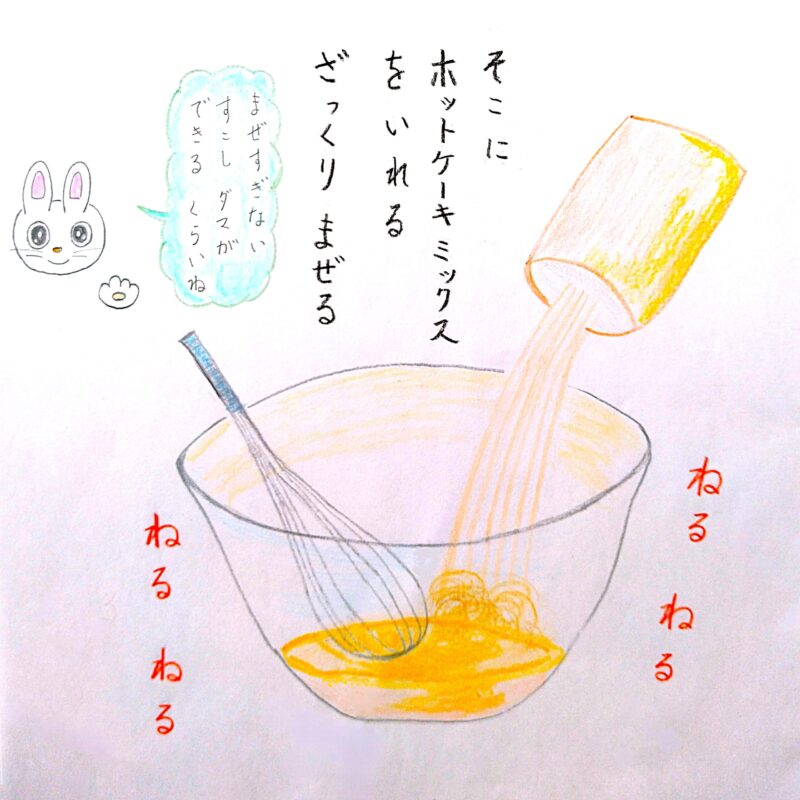 そこに
ホットケーキミックス
をいれる
ざっくり まぜる
まぜすぎない
すこし ダマが
できる くらいね
ねる
ねる
ねる
ねる